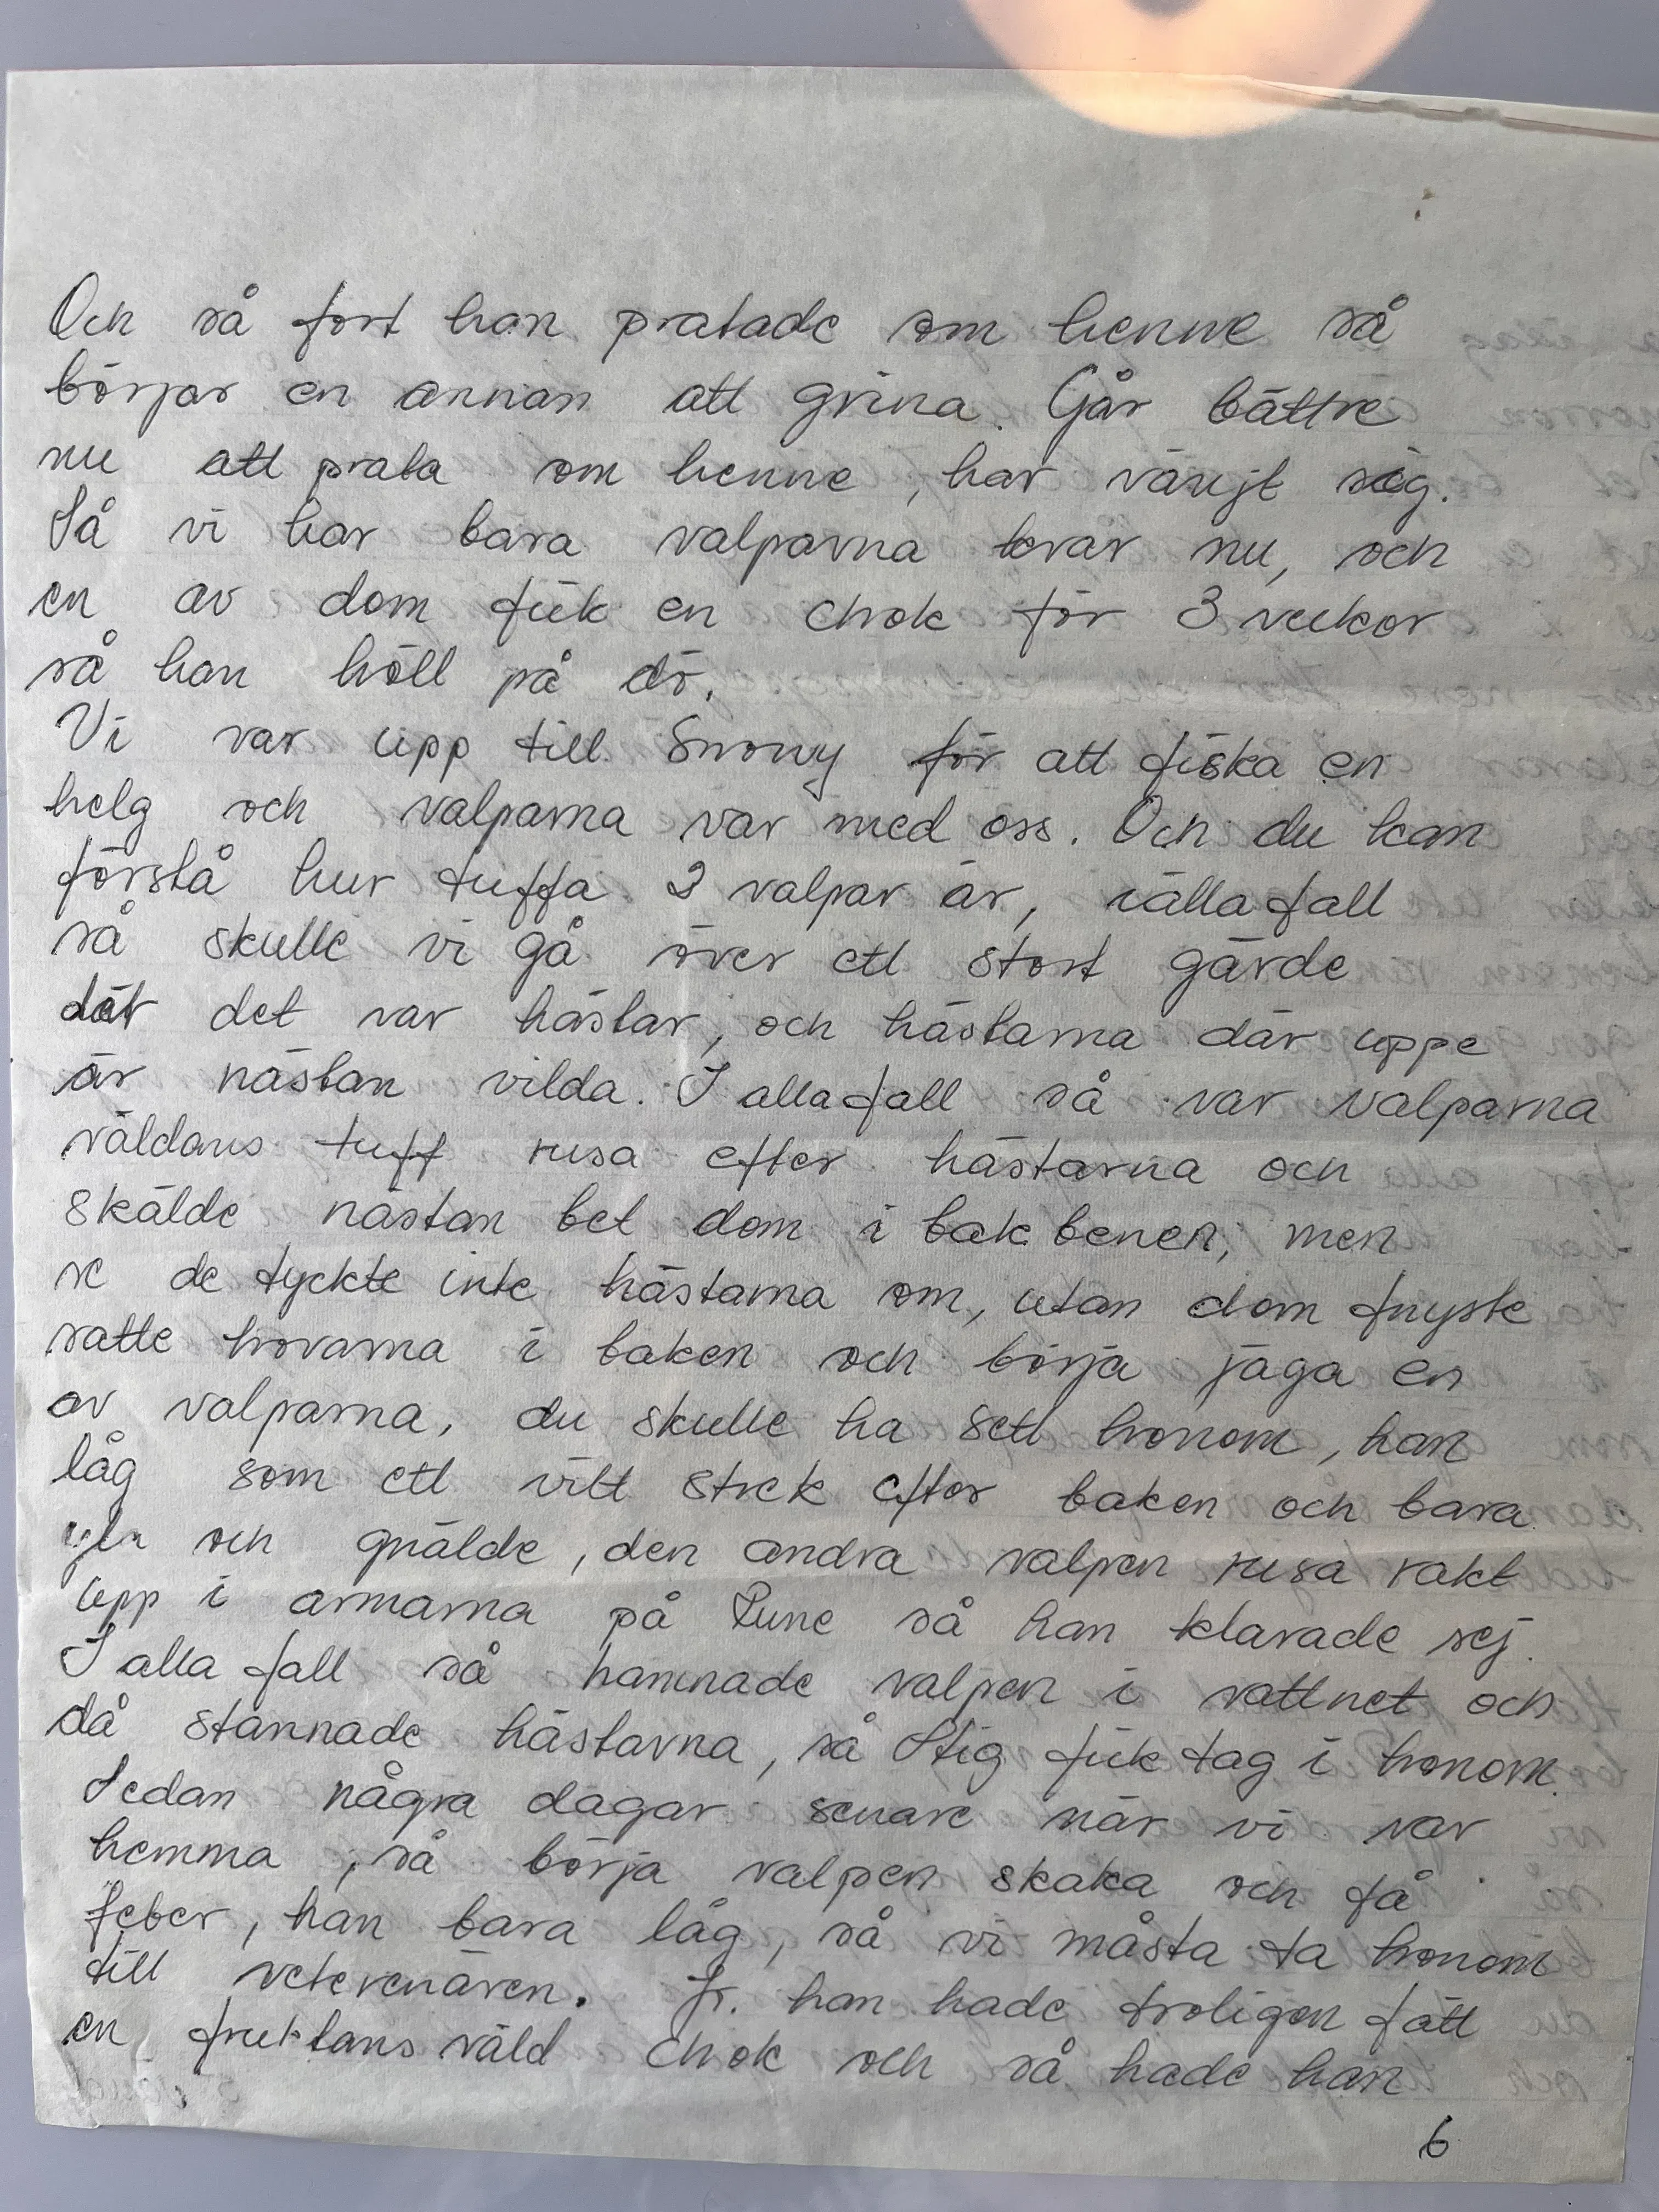 Och så fort han pratade om henne så
börjar en annan att grina. Går bättre
nu att prata om henne, har vänjt sig.
Så vi har bara valparna kvar nu, och
en av dom fick en chok för 3 veckor
så han höll på dö.
Vi var upp till Snowy för att fiska en
helg och valparna var med oss. Och du kan
förstå hur tuffa 2 valpar är, iallafall
så skulle vi gå över ett stort gärde
där det var hästar, och hästarna där uppe
är nästan vilda. I allafall så var valparna
väldans tuff rusa efter hästarna och
skälde nästan bet dom i bak benen, men
se de tyckte inte hästarna om, utan dom fnyste
satte hovarna i baken och börja jaga en
av valparna, du skulle ha sett honom, han
låg som ett vitt strek efter baken och bara
yla och gnälde, den andra valpen rusa rakt
upp i armarna på Rune så han klarade sej.
I alla fall så hamnade valpen i vattnet och
då stannade hästarna, så Stig fick tag i honom.
Sedan några dagar senare när vi var
hemma, så börja valpen skaka och få
feber, han bara låg, så vi måsta ta honom
till veterenären. Jo. han hade troligen fått
en fruktans väld chok och så hade han
6